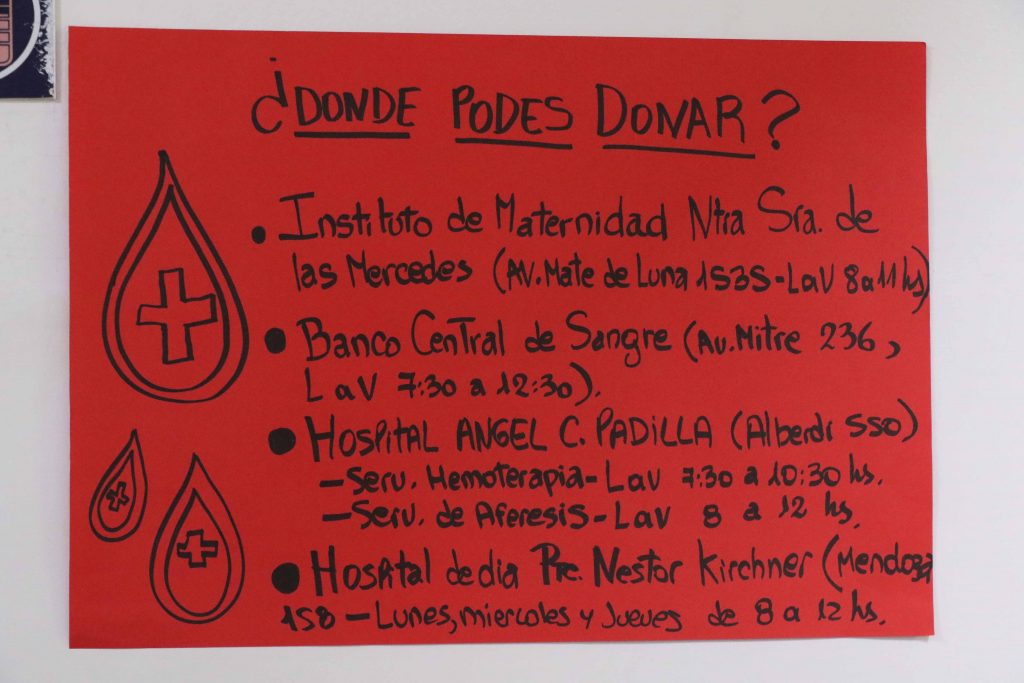 ¿DONDE PODES DONAR?
• Instituto de Maternidad Ntra Sra. de
las Mercedes (AV. Mate de Luna 1535-LaV 8 a 11 hs)
• Banco Central de Sangre (Av. Mitre 236,
LaV 7:30 a 12:30).
• HOSPITAL ANGEL C. PADILLA (Alberdi 550)
- Serv. Hemoterapia- Lav 7:30 a 10:30 hs.
- Serv. de Aferesis- Lav 8 a 12 hs.
• Hospital de dia Pte. Nestor Kirchner (Mendoza
158 - Lunes, miercoles y Jueves de 8 a 12 hs.